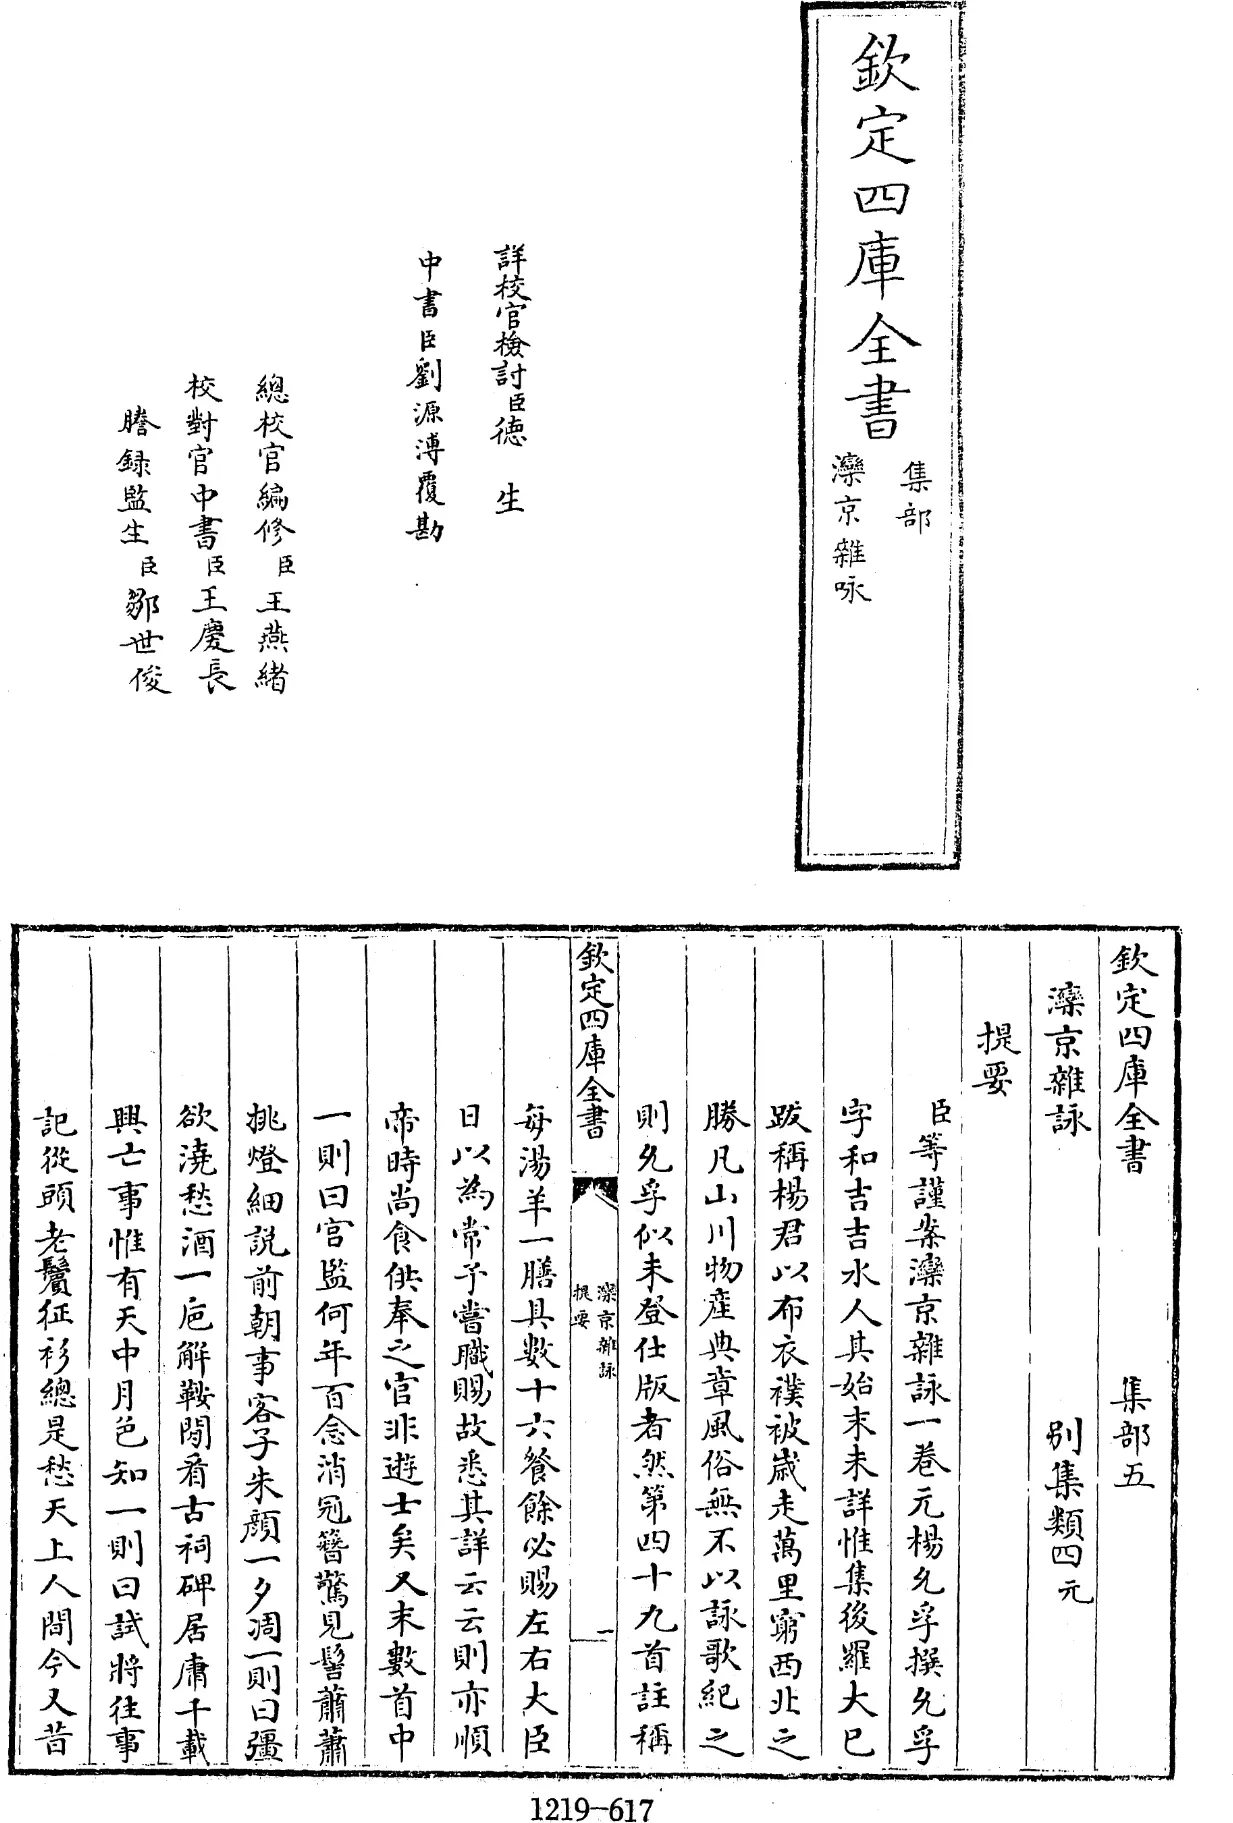 欽定四庫全書
集部
灤京雜咏
詳校官檢討臣德生
中書臣劉源溥覆勘
總校官編修臣王燕緒
校對官中書臣王慶長
謄録監生臣鄒世俊
欽定四庫全書 集部五
灤京雜詠 别集類四元
提要
臣等謹案灤京雜詠一卷元楊允孚撰允孚
字和吉吉水人其始末未詳惟集後羅大巳
跋稱楊君以布衣襆被歳走萬里窮西北之
勝凡山川物産典章風俗無不以詠歌紀之
則允孚似未登仕版者然第四十九首註稱
欽定四庫全書
灤京雜詠
提要
一
每湯羊一膳具數十六餐餘必賜左右大臣
日以為常予嘗職賜故悉其詳云云則亦順
帝時尚食供奉之官非遊士矣又末數首中
一則曰宫監何年百念消冠簪驚見髻蕭蕭
挑燈細説前朝事客子朱顔一夕凋一則曰疆
欲澆愁酒一巵解鞍閒看古祠碑居庸千載
興亡事惟有天中月色知一則曰試將往事
記從頭老鬢征衫總是愁天上人間今又昔
1219-617